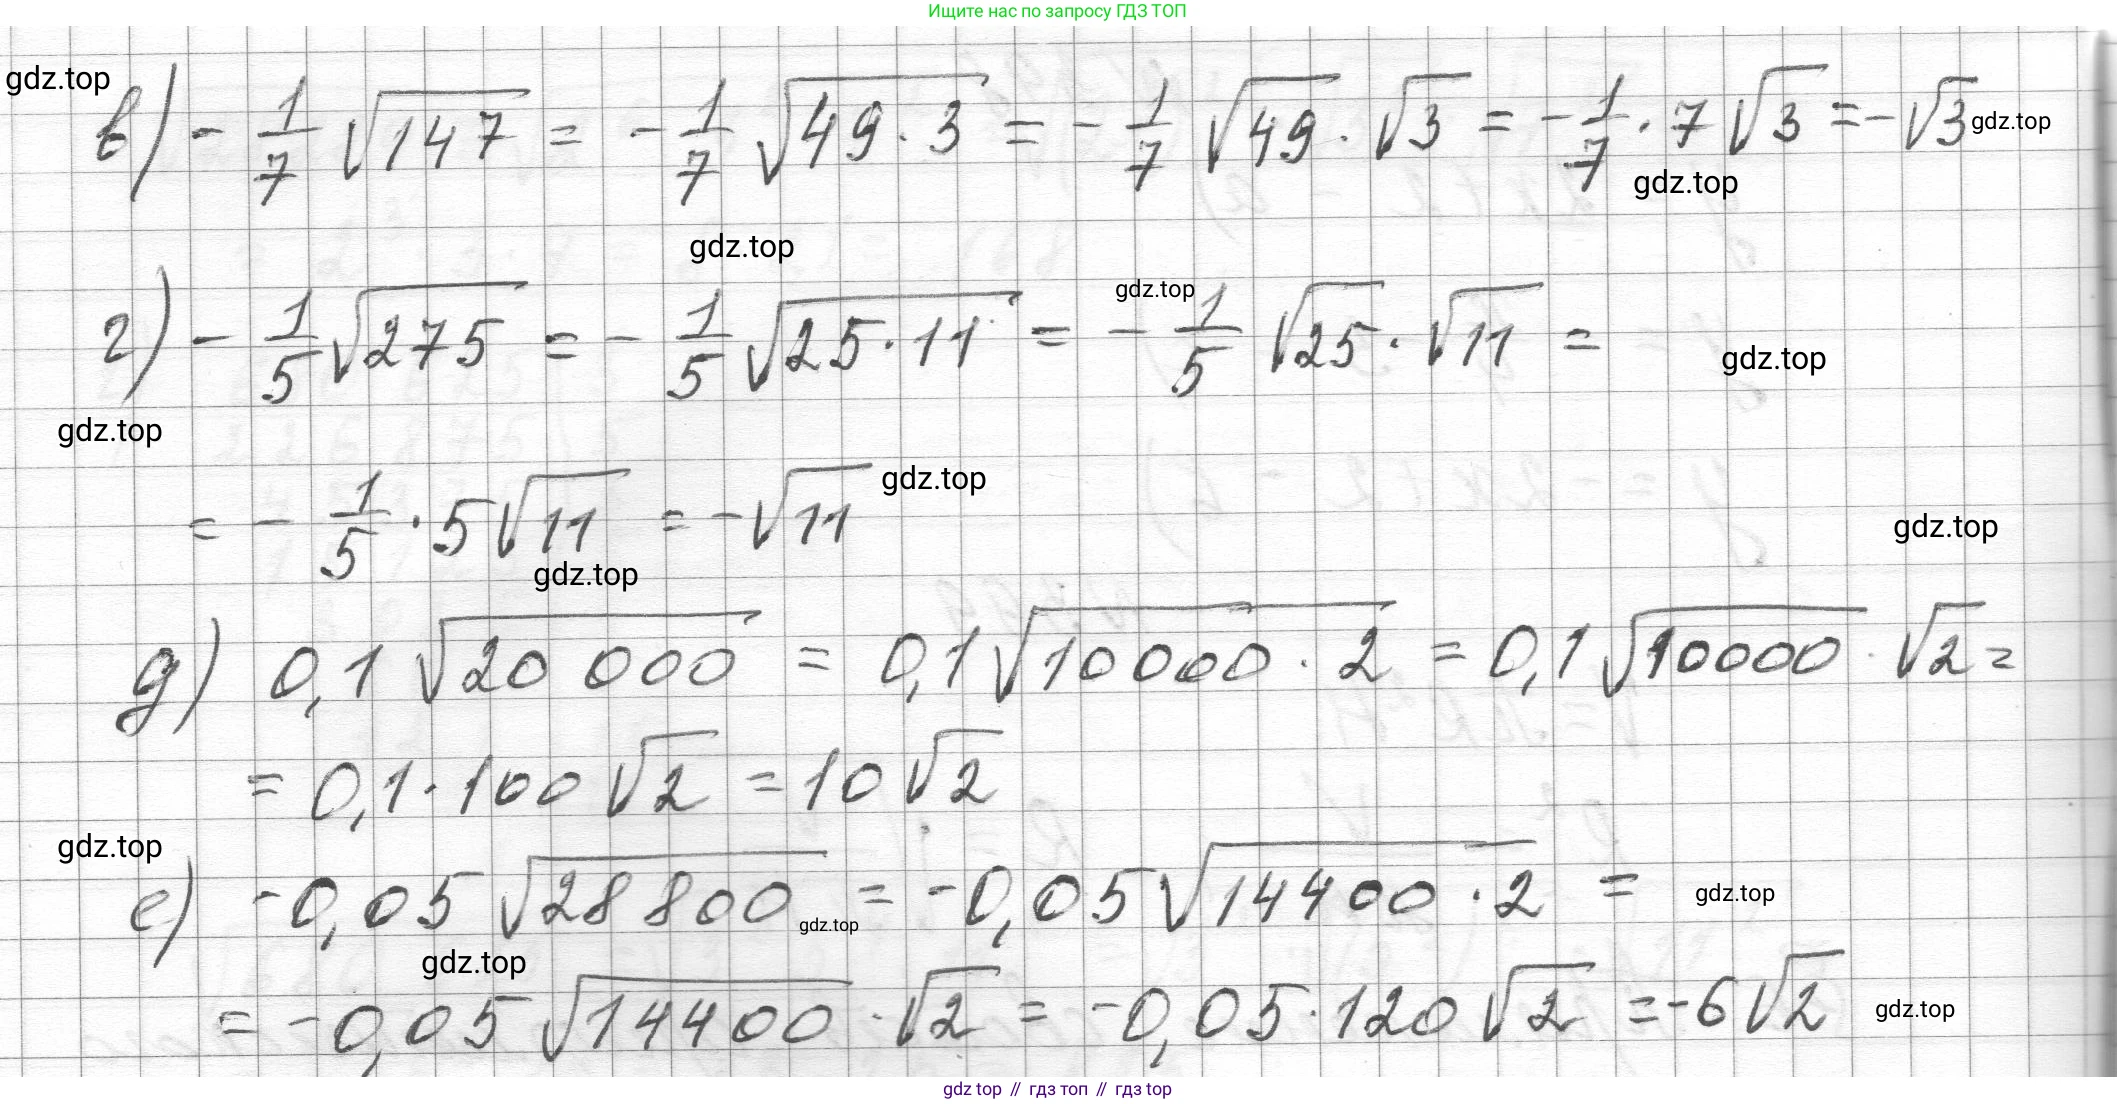 Ищите нас по запросу ГДЗ ТОП
gdz.top
в) - 1/7 √147 = - 1/7 √(49 · 3) = - 1/7 √49 · √3 = - 1/7 · 7√3 = - √3 gdz.top
gdz.top
gdz.top
gdz.top
г) - 1/5 √275 = - 1/5 √(25 · 11) = - 1/5 √25 · √11 =
gdz.top
gdz.top
= - 1/5 · 5√11 = - √11 gdz.top
gdz.top
gdz.top
д) 0,1 √20 000 = 0,1 √(10000 · 2) = 0,1 √10000 · √2 =
= 0,1 · 100 √2 = 10 √2
gdz.top
е) -0,05 √28 800 gdz.top = -0,05 √(14400 · 2) = gdz.top
gdz.top
= -0,05 √14400 · √2 = -0,05 · 120 √2 = -6√2 gdz.top
gdz top // гдз топ // гдз top